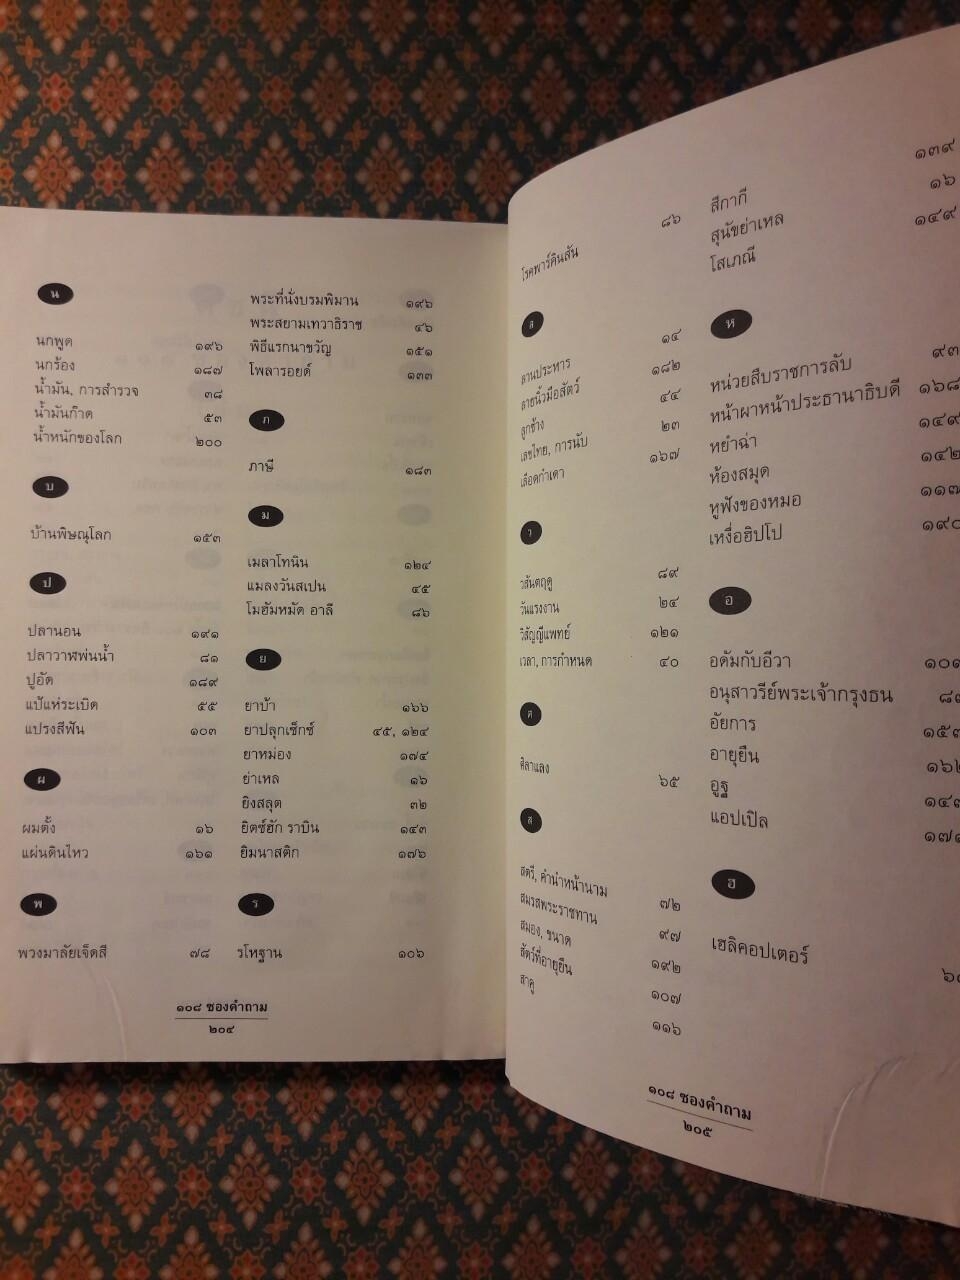 น
นกพูด ๑๙๖
นกร้อง ๑๘๗
น้ำมัน, การสำรวจ ๓๘
น้ำมันก๊าด ๕๓
น้ำหนักของโลก ๒๐๐
บ
บ้านพิษณุโลก ๑๕๓
ป
ปลานอน ๑๙๑
ปลาวาฬพ่นน้ำ ๘๑
ปูอัด ๑๘๙
แป้แห่ระเบิด ๕๕
แปรงสีฟัน ๑๐๓
ผ
ผมตั้ง ๑๖
แผ่นดินไหว ๑๖๑
พ
พวงมาลัยเจ็ดสี ๗๘
พระที่นั่งบรมพิมาน ๑๙๖
พระสยามเทวาธิราช ๔๖
พิธีแรกนาขวัญ ๑๕๑
โพลารอยด์ ๑๓๓
ภ
ภาษี ๑๘๓
ม
เมลาโทนิน ๑๒๔
แมลงวันสเปน ๔๕
โมฮัมหมัด อาลี ๘๖
ย
ยาบ้า ๑๖๖
ยาปลุกเซ็กซ์ ๔๕, ๑๒๔
ยาหม่อง ๑๗๔
ย่าเหล ๑๖
ยิงสลุต ๓๒
ยิตซ์ฮัก ราบิน ๑๔๓
ยิมนาสติก ๑๗๖
ร
รโหฐาน ๑๐๖
๑๐๘ ซองคำถาม
๒๐๔
โรคพาร์คินสัน ๘๖
ล
ลานประหาร ๑๔
ลายนิ้วมือสัตว์ ๑๘๒
ลูกช้าง ๔๔
เลขไทย, การนับ ๒๓
เลือดกำเดา ๑๖๗
ว
วสันตฤดู ๘๙
วันแรงงาน ๒๔
วิสัญญีแพทย์ ๑๒๑
เวลา, การกำหนด ๔๐
ศ
ศิลาแลง ๖๕
ส
สตรี, คำนำหน้านาม ๗๒
สมรสพระราชทาน ๙๗
สมอง, ขนาด ๑๙๒
สัตว์ที่อายุยืน ๑๐๗
สาคู ๑๑๖
สีกากี ๑๓๙
สุนัขย่าเหล ๑๖
โสเภณี ๑๔๙
ห
หน่วยสืบราชการลับ ๙๓
หน้าผาหน้าประธานาธิบดี ๑๖๘
หยำฉ่า ๑๔๙
ห้องสมุด ๑๔๒
หูฟังของหมอ ๑๑๗
เหงื่อฮิปโป ๑๙๐
อ
อดัมกับอีวา
อนุสาวรีย์พระเจ้ากรุงธน
อัยการ ๑๕๓
อายุยืน ๑๖๒
อูฐ
แอปเปิล
ฮ
เฮลิคอปเตอร์
๑๐๘ ซองคำถาม
๒๐๕